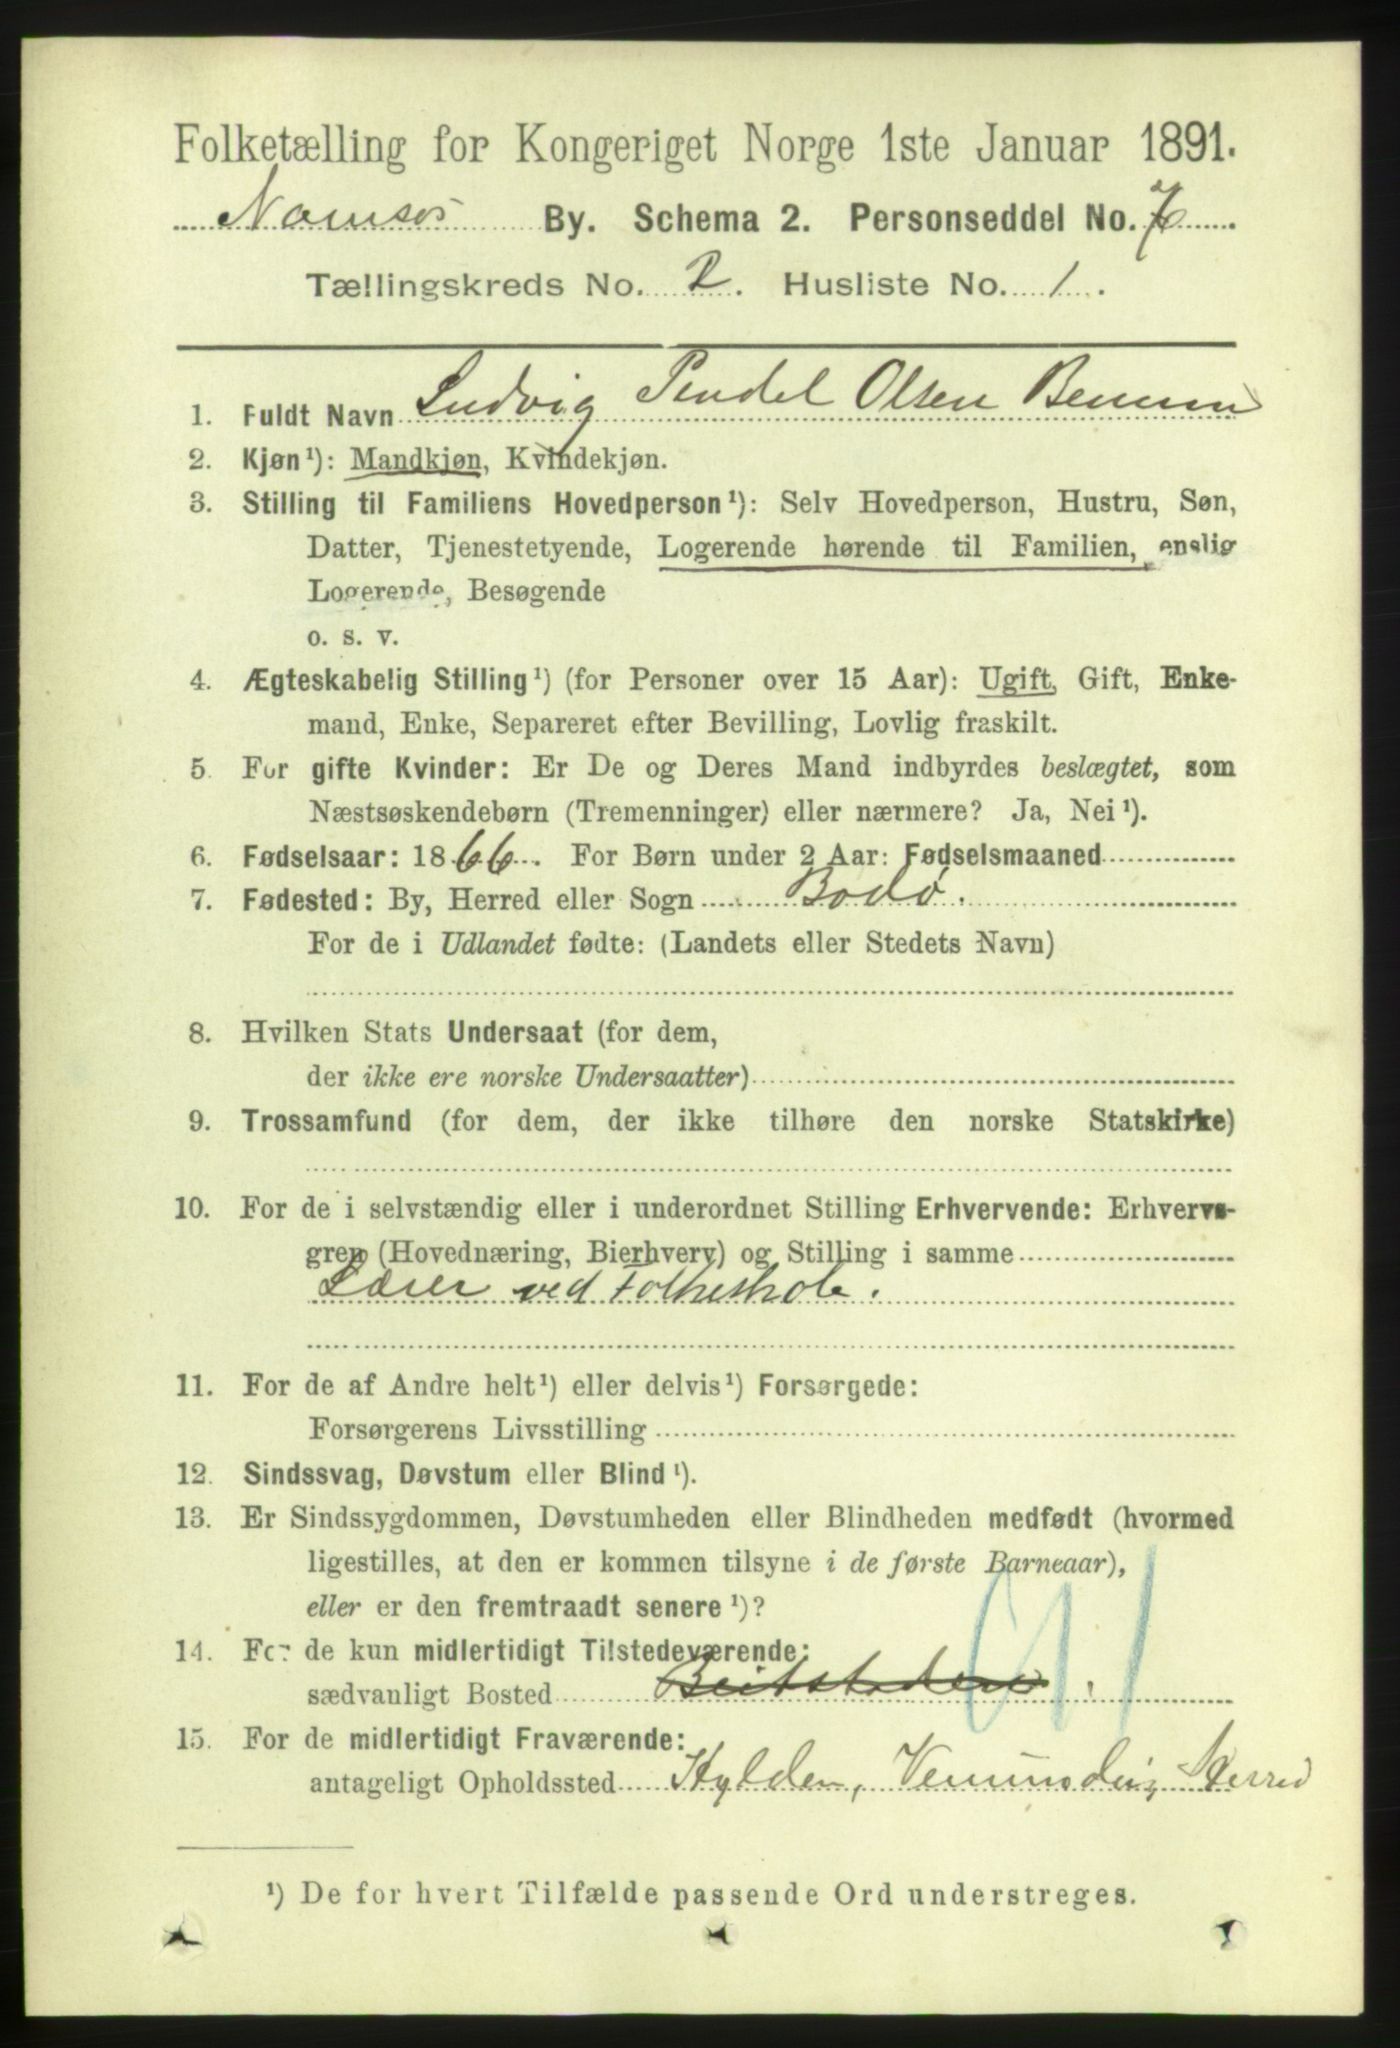 Folketælling for Kongeriget Norge 1ste Januar 1891.
Namsos By. Schema 2. Personseddel No. 7
Tællingskreds No. 2. Husliste No. 1.
1. Fuldt Navn Ludvig Pendel Olsen
2. Kjøn¹): Mandkjøn, Kvindekjøn.
3. Stilling til Familiens Hovedperson¹): Selv Hovedperson, Hustru, Søn,
Datter, Tjenestetyende, Logerende hørende til Familien, enslig
Logerende, Besøgende
o. s. v.
4. Ægteskabelig Stilling¹) (for Personer over 15 Aar): Ugift, Gift, Enke-
mand, Enke, Separeret efter Bevilling, Lovlig fraskilt.
5. For gifte Kvinder: Er De og Deres Mand indbyrdes beslægtet, som
Næstsøskendebørn (Tremenninger) eller nærmere? Ja, Nei¹).
6. Fødselsaar: 1866. For Børn under 2 Aar: Fødselsmaaned
7. Fødested: By, Herred eller Sogn Bodø.
For de i Udlandet fødte: (Landets eller Stedets Navn)
8. Hvilken Stats Undersaat (for dem,
der ikke ere norske Undersaatter)
9. Trossamfund (for dem, der ikke tilhøre den norske Statskirke)
10. For de i selvstændig eller i underordnet Stilling Erhvervende: Erhvervs-
gren (Hovednæring, Bierhverv) og Stilling i samme
Lærer ved Folkeskole.
11. For de af Andre helt¹) eller delvis¹) Forsørgede:
Forsørgerens Livsstilling
12. Sindssvag, Døvstum eller Blind¹).
13. Er Sindssygdommen, Døvstumheden eller Blindheden medfødt (hvormed
ligestilles, at den er kommen tilsyne i de første Barneaar),
eller er den fremtraadt senere¹)?
14. For de kun midlertidigt Tilstedeværende:
sædvanligt Bosted Beitstaden.
15. For de midlertidigt Fraværende:
antageligt Opholdssted Hylden, Vemundvig Herred
¹) De for hvert Tilfælde passende Ord understreges.